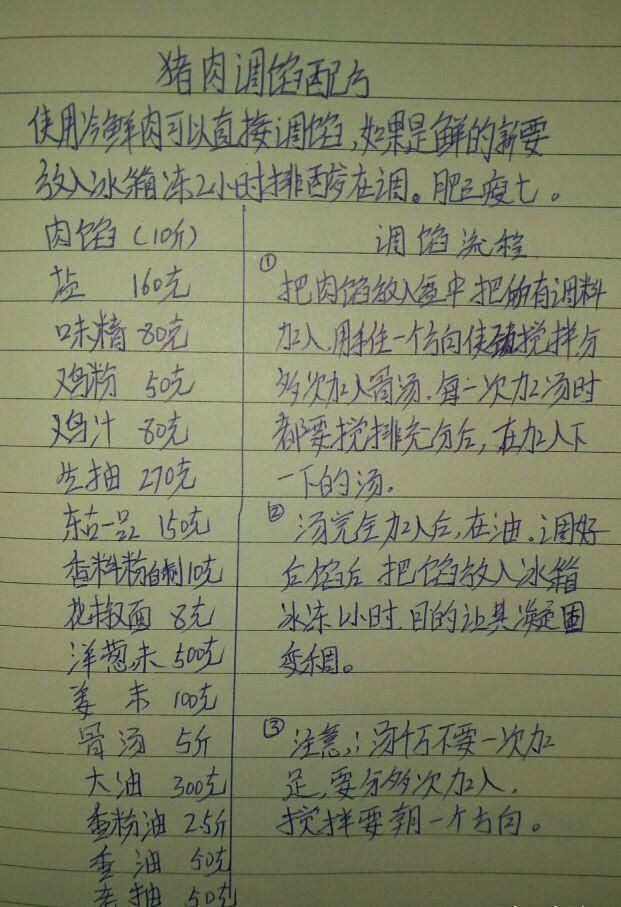 猪肉调馅配方
使用冷鲜肉可以直接调馅，如果是鲜的新要
放入冰箱冻2小时排酸在调。肥三瘦七。
肉馅（10斤）
盐 160克
味精 80克
鸡粉 50克
鸡汁 80克
生抽 270克
东古一品 150克
香料粉自制10克
花椒面 8克
洋葱末 500克
姜末 100克
骨汤 5斤
大油 300克
香粉油 2.5斤
香油 50克
老抽 50克
调馅流程
① 把肉馅放入盆中把所有调料
加入，用手往一个方向使劲搅拌分
多次加入骨汤，每一次加汤时
都要搅排充分后，在加入下
一下的汤。
② 汤完全加入后，在油。调好
后馅后 把馅放入冰箱
冰冻1小时，目的让其凝固
变稠。
③ 注意：汤千万不要一次加
足，要分多次加入，
搅拌要朝一个方向。